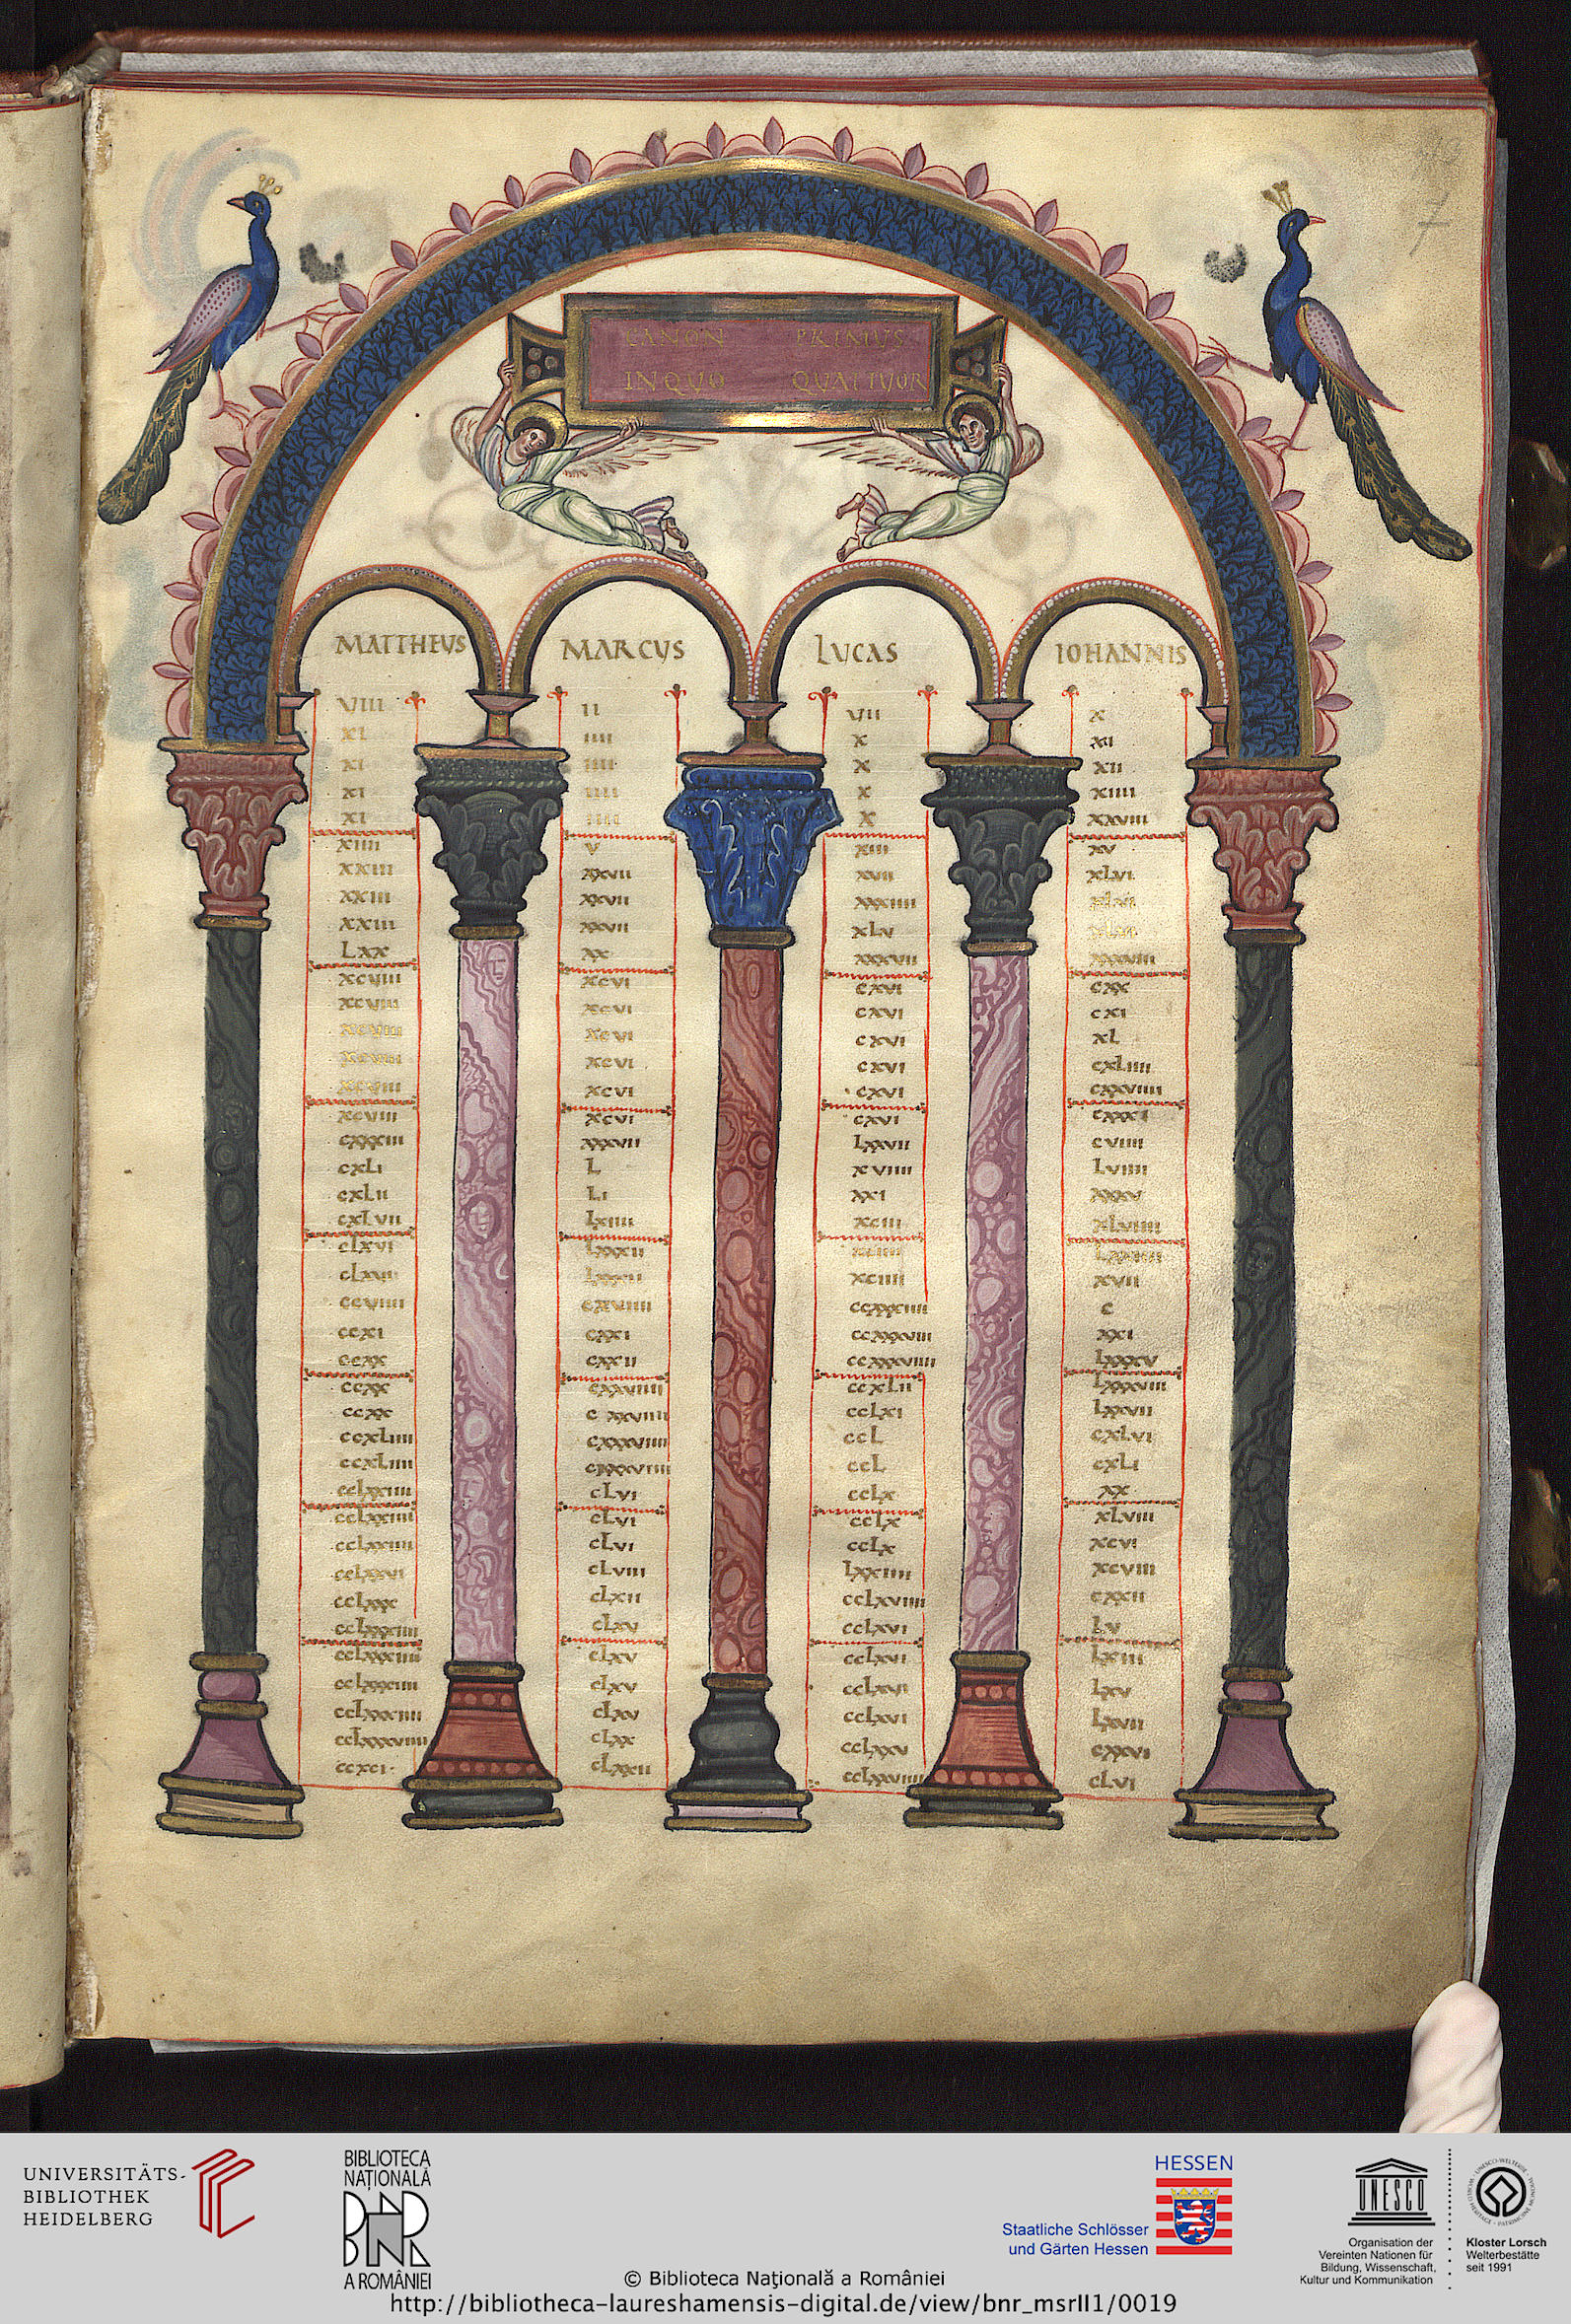 CANON PRIMUS
IN QUO QUATTUOR
MATTHEUS MARCUS LUCAS IOHANNIS
VIII II VII X
XI IIII X XI
XI IIII X XII
XI IIII X XIIII
XI IIII X XXVIII
XIIII V XIII XV
XXIII XXVII XVII XLVI
XXIII XXVII XXXIIII XLVI
XXIII XXVII XLV XLVI
LXX XX XXXVII XXXVIII
XCVIII XCVI CXVI CXX
XCVIII XCVI CXVI CXI
XCVIII XCVI CXVI XL
XCVIII XCVI CXVI CXLIIII
XCVIII XCVI CXVI CXXVIIII
XCVIII XCVI CXVI CXXXI
CXXXIII XXXVII LXXVII CVIIII
CXLI L XVIIII LVIIII
CXLII LI XXI XXXV
CXLVII LXIIII XCIII XLVIIII
CLXVI LXXXII XCIIII
CLXVI LXXXII XCIIII XVII
CCVIIII CXVIIII CCXXXIIII C
CCXI CXXI CCXXXVIII XXI
CCXX CXXII CCXXXVIIII LXXXV
CCXX CXXVIIII CCXLII LXXXVIII
CCXX CXXVIIII CCLXI LXXVII
CCXLIIII CXXXVIIII CCL CXLVI
CCXLIIII CXXXVIIII CCL CXLI
CCLXXIIII CLVI CCLX XX
CCLXXIIII CLVI CCLX XLVIII
CCLXXIIII CLVI CCLX XCVI
CCLXXVI CLVIII LXXIIII XCVIII
CCLXXX CLXII CCLXVIIII CXXII
CCLXXXIIII CLXV CCLXVI LV
CCLXXXIIII CLXV CCLXVI LXIII
CCLXXXIIII CLXV CCLXVI LXV
CCLXXXIIII CLXV CCLXVI LXVII
CCLXXXVIIII CLXX CCLXXV CXXVI
CCXCI CLXXII CCLXXVIIII CLVI
UNIVERSITÄTS-
BIBLIOTHEK
HEIDELBERG
BIBLIOTECA
NAȚIONALĂ
BNR
A ROMÂNIEI
HESSEN
Staatliche Schlösser
und Gärten Hessen
UNESCO
Organisation der
Vereinten Nationen für
Bildung, Wissenschaft,
Kultur und Kommunikation
Kloster Lorsch
Welterbestätte
seit 1991
© Biblioteca Naţională a României
http://bibliotheca-laureshamensis-digital.de/view/bnr_msrII1/0019